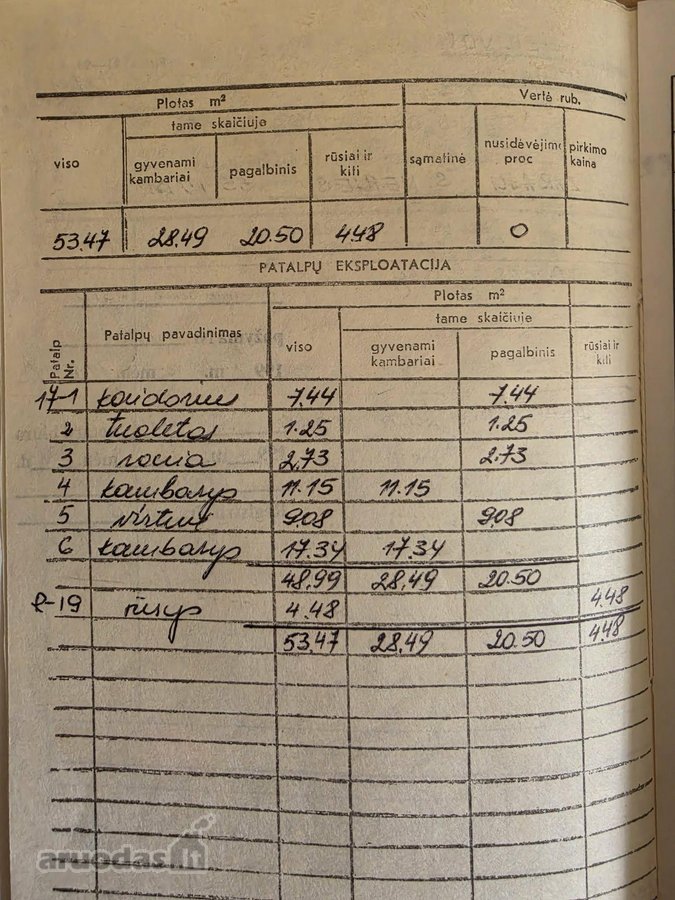 Plotas m² Vertė rub.
tame skaičiuje
viso gyvenami kambariai pagalbinis rūsiai ir kiti sąmatinė nusidėvėjimo proc pirkimo kaina
53.47 28.49 20.50 4.48 0
PATALPŲ EKSPLOATACIJA
Plotas m²
tame skaičiuje
Patalp Nr. Patalpų pavadinimas viso gyvenami kambariai pagalbinis rūsiai ir kiti
17-1 koridorius 7.44 7.44
2 tualetas 1.25 1.25
3 vonia 2.73 2.73
4 kambarys 11.15 11.15
5 virtuvė 9.08 9.08
6 kambarys 17.34 17.34
48.99 28.49 20.50
R-19 rūsys 4.48 4.48
53.47 28.49 20.50 4.48
aruodas.lt